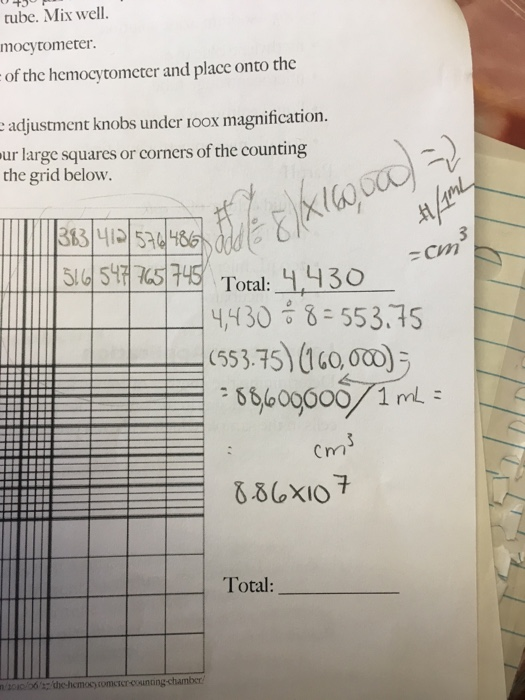 tube. Mix well.
mocytometer.
of the hemocytometer and place onto the
adjustment knobs under 100x magnification.
ur large squares or corners of the counting
the grid below.
# add ÷ 8)(x160,000) =
#/1mL
= cm³
383 412 576 486
516 547 765 745
Total: 4,430
4,430 ÷ 8 = 553.75
(553.75)(160,000) =
= 88,600,000/1 mL =
= cm³
8.86x10⁷
Total:
the-hemocytometer-counting-chamber/